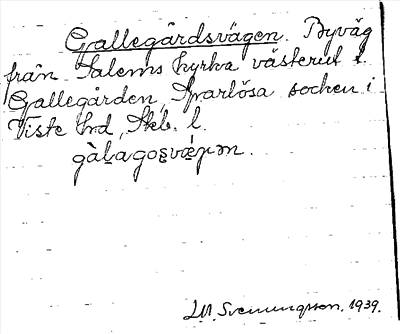 Gallegårdsvägen. Byväg
från Salems kyrka västerut t.
Gallegården, Sparlösa socken i
Viste hrd, Skb. l.
M. Svenungsson. 1939.